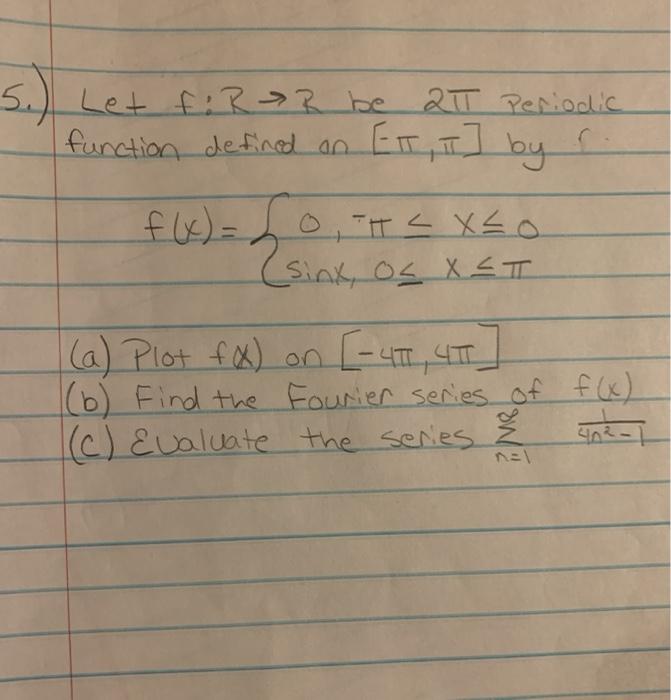 5.) Let f: R → R be 2π Periodic
function defined on [-π, π] by
f(x) = { 0, -π ≤ x ≤ 0
sinx, 0 ≤ x ≤ π
(a) Plot f(x) on [-4π, 4π]
(b) Find the Fourier series of f(x)
(c) Evaluate the series ∞ Σ n=1 1/4n²-1